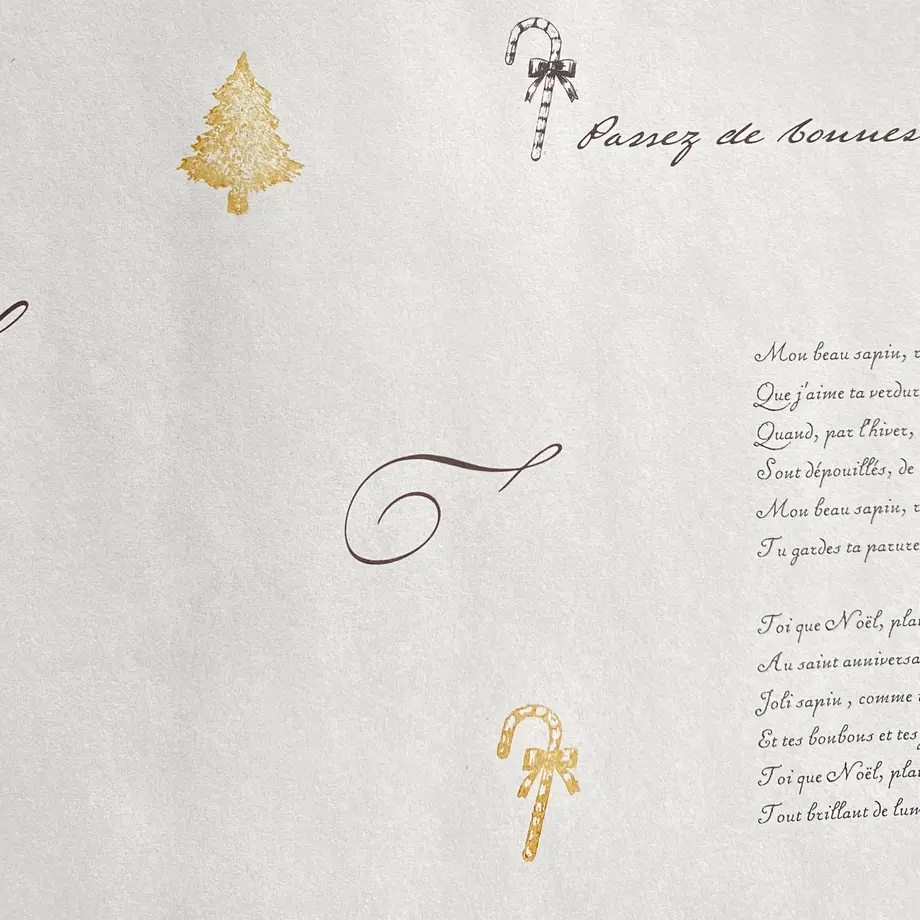 Passez de bonnes
Mon beau sapin,
Que j'aime ta verdur
Quand, par l'hiver,
Sont dépouillés, de
Mon beau sapin,
Tu gardes ta parure
Toi que Noël, pla
Au saint anniversa
Joli sapin , comme
Et tes bonbons et tes
Toi que Noël, pla
Tout brillant de lum